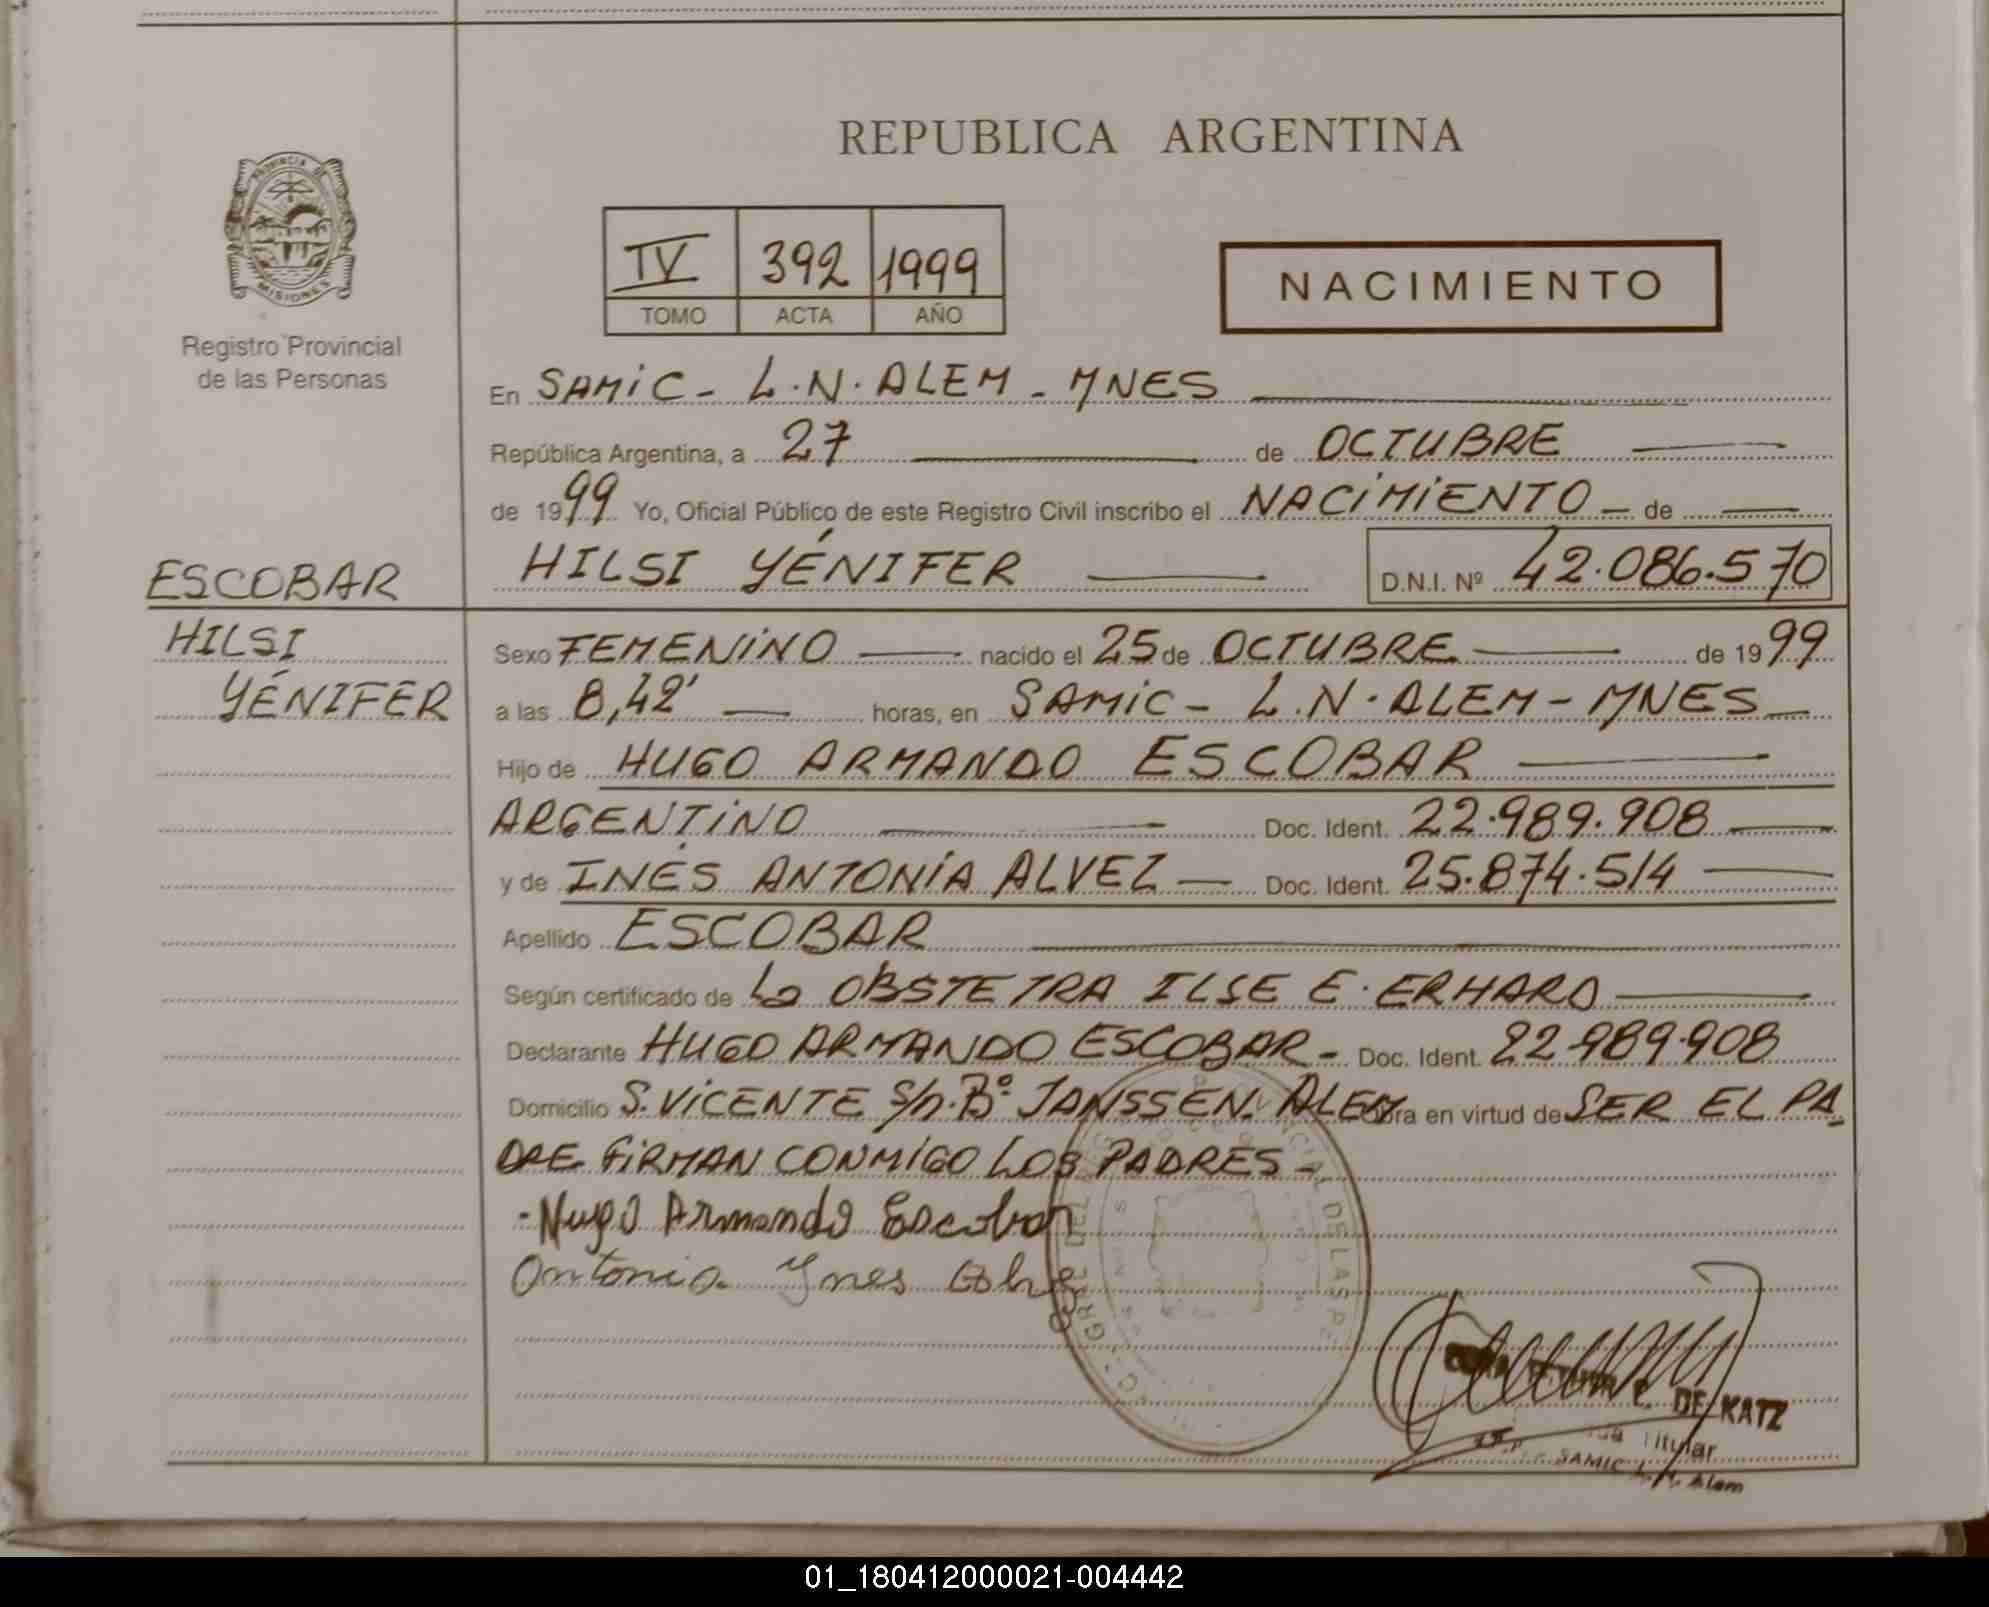 REPUBLICA ARGENTINA
PROVINCIA DE
MISIONES
Registro Provincial
de las Personas
IV 392 1999
TOMO ACTA AÑO
NACIMIENTO
En SAMIC - L.N. ALEM - MNES
República Argentina, a 27 de OCTUBRE
de 1999 Yo, Oficial Público de este Registro Civil inscribo el NACIMIENTO de
HILSI YÉNIFER D.N.I. Nº 42.086.570
ESCOBAR
HILSI
YÉNIFER
Sexo FEMENINO nacido el 25 de OCTUBRE de 1999
a las 8,42' horas, en SAMIC - L.N. ALEM - MNES
Hijo de HUGO ARMANDO ESCOBAR
ARGENTINO Doc. Ident. 22.989.908
y de INÉS ANTONIA ALVEZ Doc. Ident. 25.874.514
Apellido ESCOBAR
Según certificado de La OBSTETRA ILSE E. ERHARD
Declarante HUGO ARMANDO ESCOBAR - Doc. Ident. 22.989.908
Domicilio S. VICENTE S/n. Bº JANSSEN. ALEM Obra en virtud de SER EL PA
DRE FIRMAN CONMIGO LOS PADRES -
Hugo Armando Escobar
Antonia Ynes
DE KATZ
Titular
SAMIC L. N. Alem
01_180412000021-004442